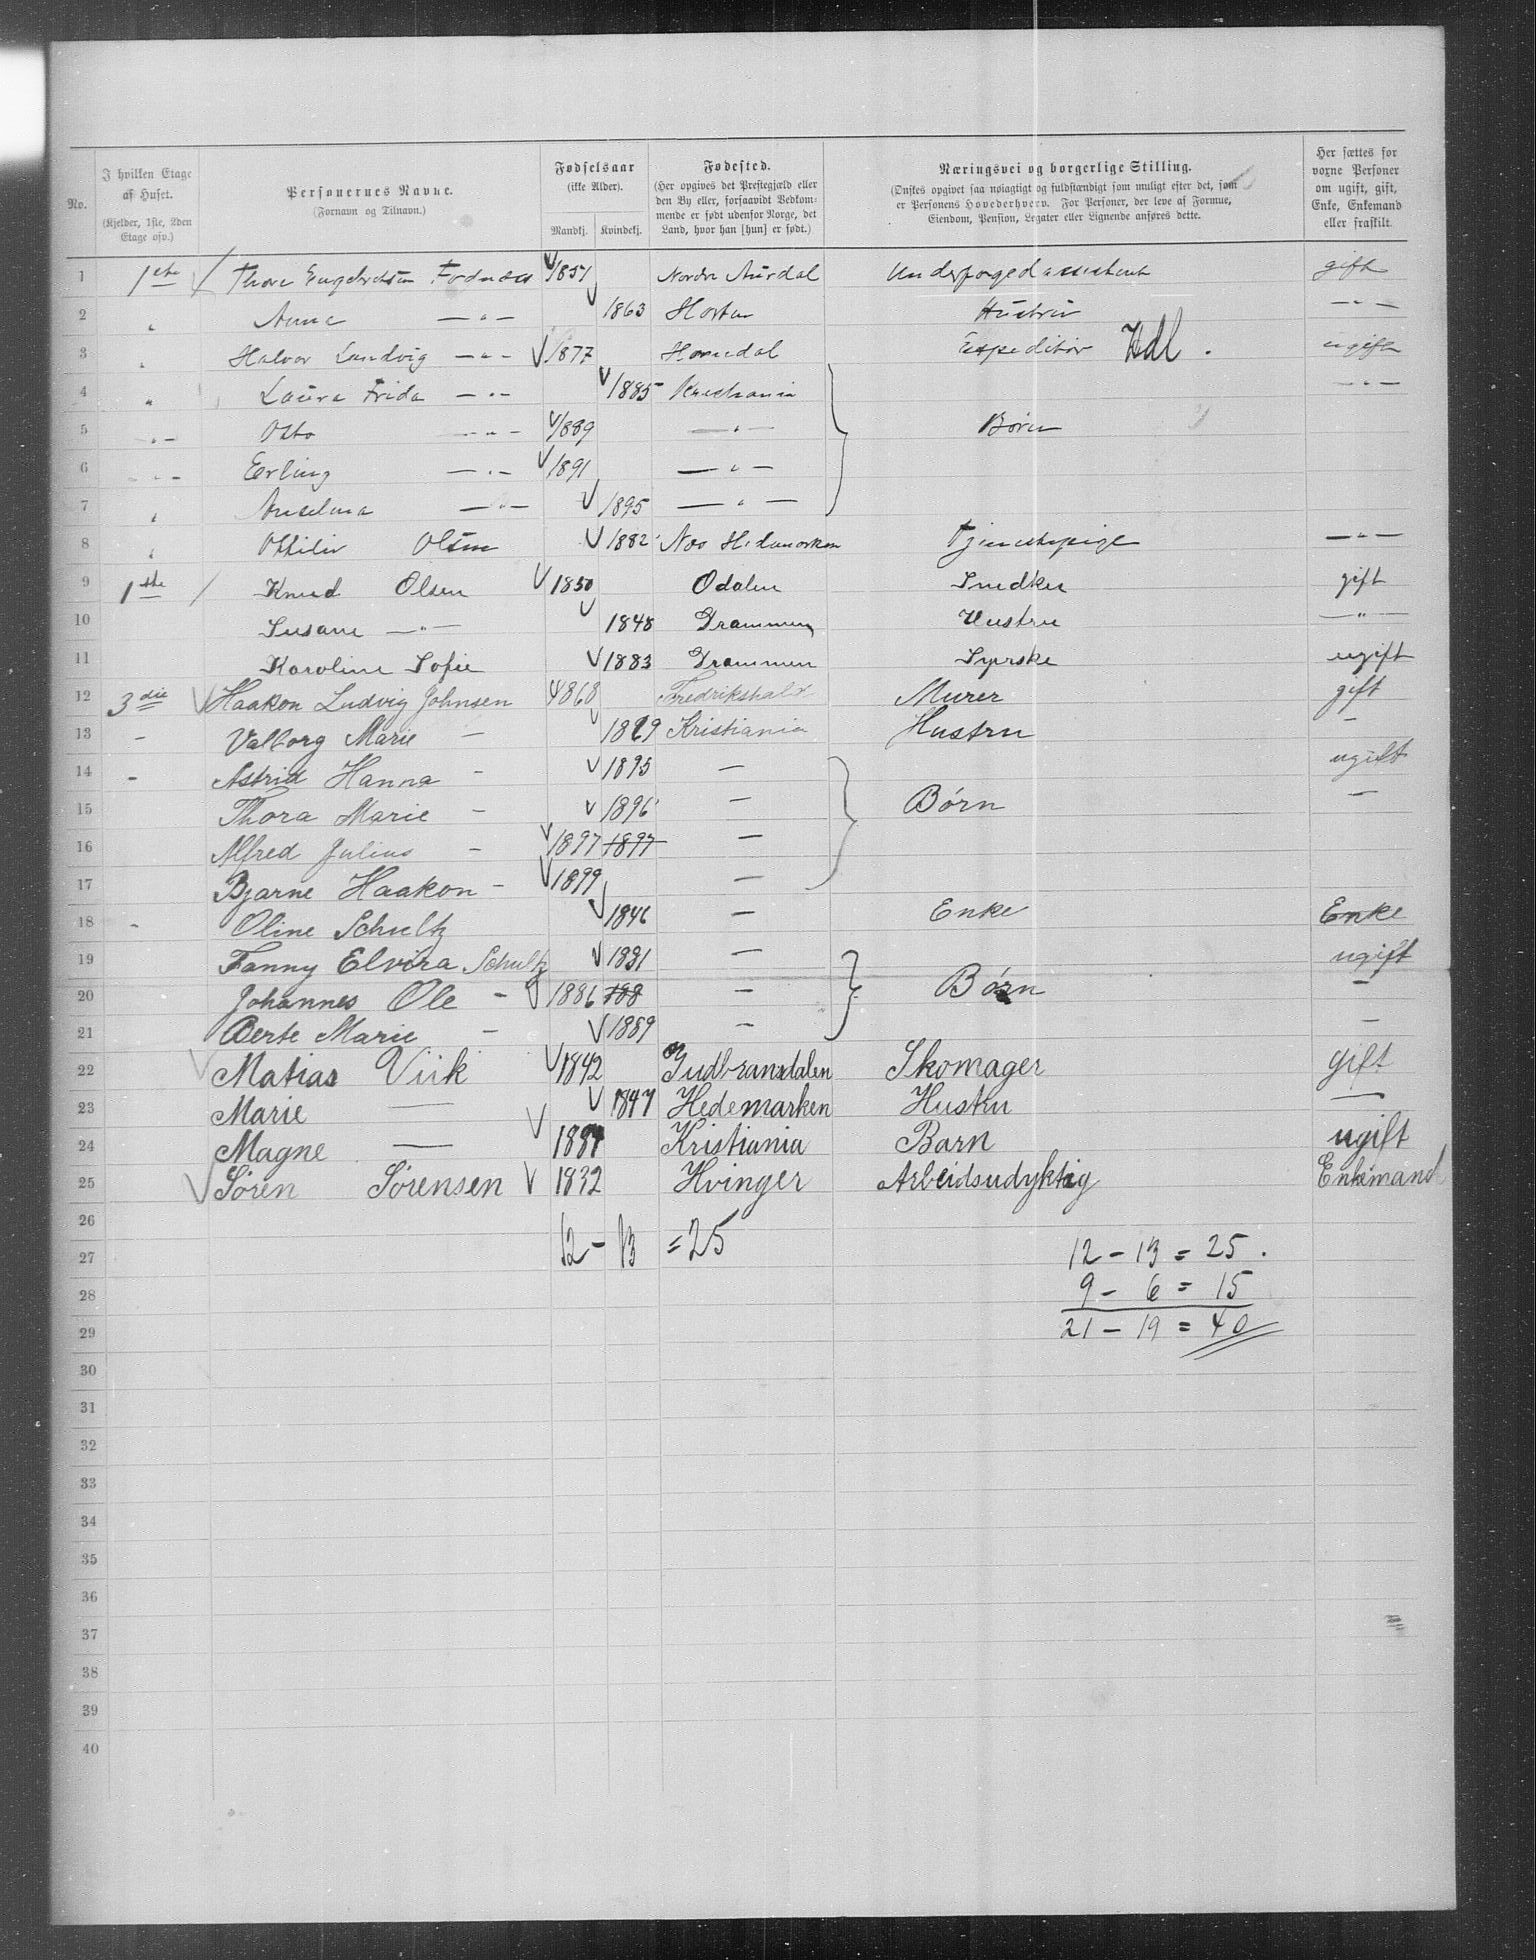 No.
I hvilken Etage af Huset.
(Kjelder, 1ste, 2den Etage osv.)
Personernes Navne.
(Fornavn og Tilnavn.)
Fødselsaar
(ikke Alder).
Mandkj. Kvindekj.
Fødested.
(Her opgives det Prestegjæld eller
den By eller, forsaavidt Vedkom-
mende er født udenfor Norge, det
Land, hvor han [hun] er født.)
Næringsvei og borgerlige Stilling.
(Ønskes opgivet saa nøiagtigt og fuldstændigt som muligt efter det, som
er Personens Hovederhverv. For Personer, der leve af Formue,
Eiendom, Pension, Legater eller Lignende anføres dette.
Her sættes for
voxne Personer
om ugift, gift,
Enke, Enkemand
eller fraskilt.
1 1ste Thore Engebretsen 1857 Nordre Aurdal gift
2 " Anna — " — 1863 Horten Hustru — " —
3 " Halvor Landvig — " — 1877 Expeditør Hdl. ugift
4 " Laura Frida — " — 1885 Kristiania — " —
5 " — Otto — " — 1889 — " — Børn
6 " — Erling — " — 1891 — " —
7 " Anselma — " — 1895 — " —
8 " Ottilie Olsen 1882 Næs Hedemarken Tjenestepige — " —
9 1ste Knud Olsen 1850 Odalen Snedker gift
10 Susane — " — 1848 Drammen Hustru — " —
11 Karoline Sofie 1883 Drammen Syerske ugift
12 3die Haakon Ludvig Johnsen 1868 Fredrikshald Murer gift
13 - Valborg Marie — 1869 Kristiania Hustru —
14 - Astrid Hanna - 1895 — ugift
15 Thora Marie - 1896 — Børn —
16 Alfred Julius - 1897 1897 —
17 Bjarne Haakon - 1899 —
18 - Oline Schultz 1846 — Enke Enke
19 Fanny Elvira Schultz 1881 — ugift
20 Johannes Ole - 1886 188 — Børn —
21 Berte Marie - 1889 — —
22 Matias Viik 1842 Gudbrandalen Skomager gift
23 Marie — 1847 Hedemarken Hustru —
24 Magne — Kristiania Barn ugift
25 Søren Sørensen 1832 Hvinger Arbeidsudyktig Enkemand
26
12 - 13 = 25
27 12 - 13 = 25.
28 9 - 6 = 15
29 21 - 19 = 40
30
31
32
33
34
35
36
37
38
39
40